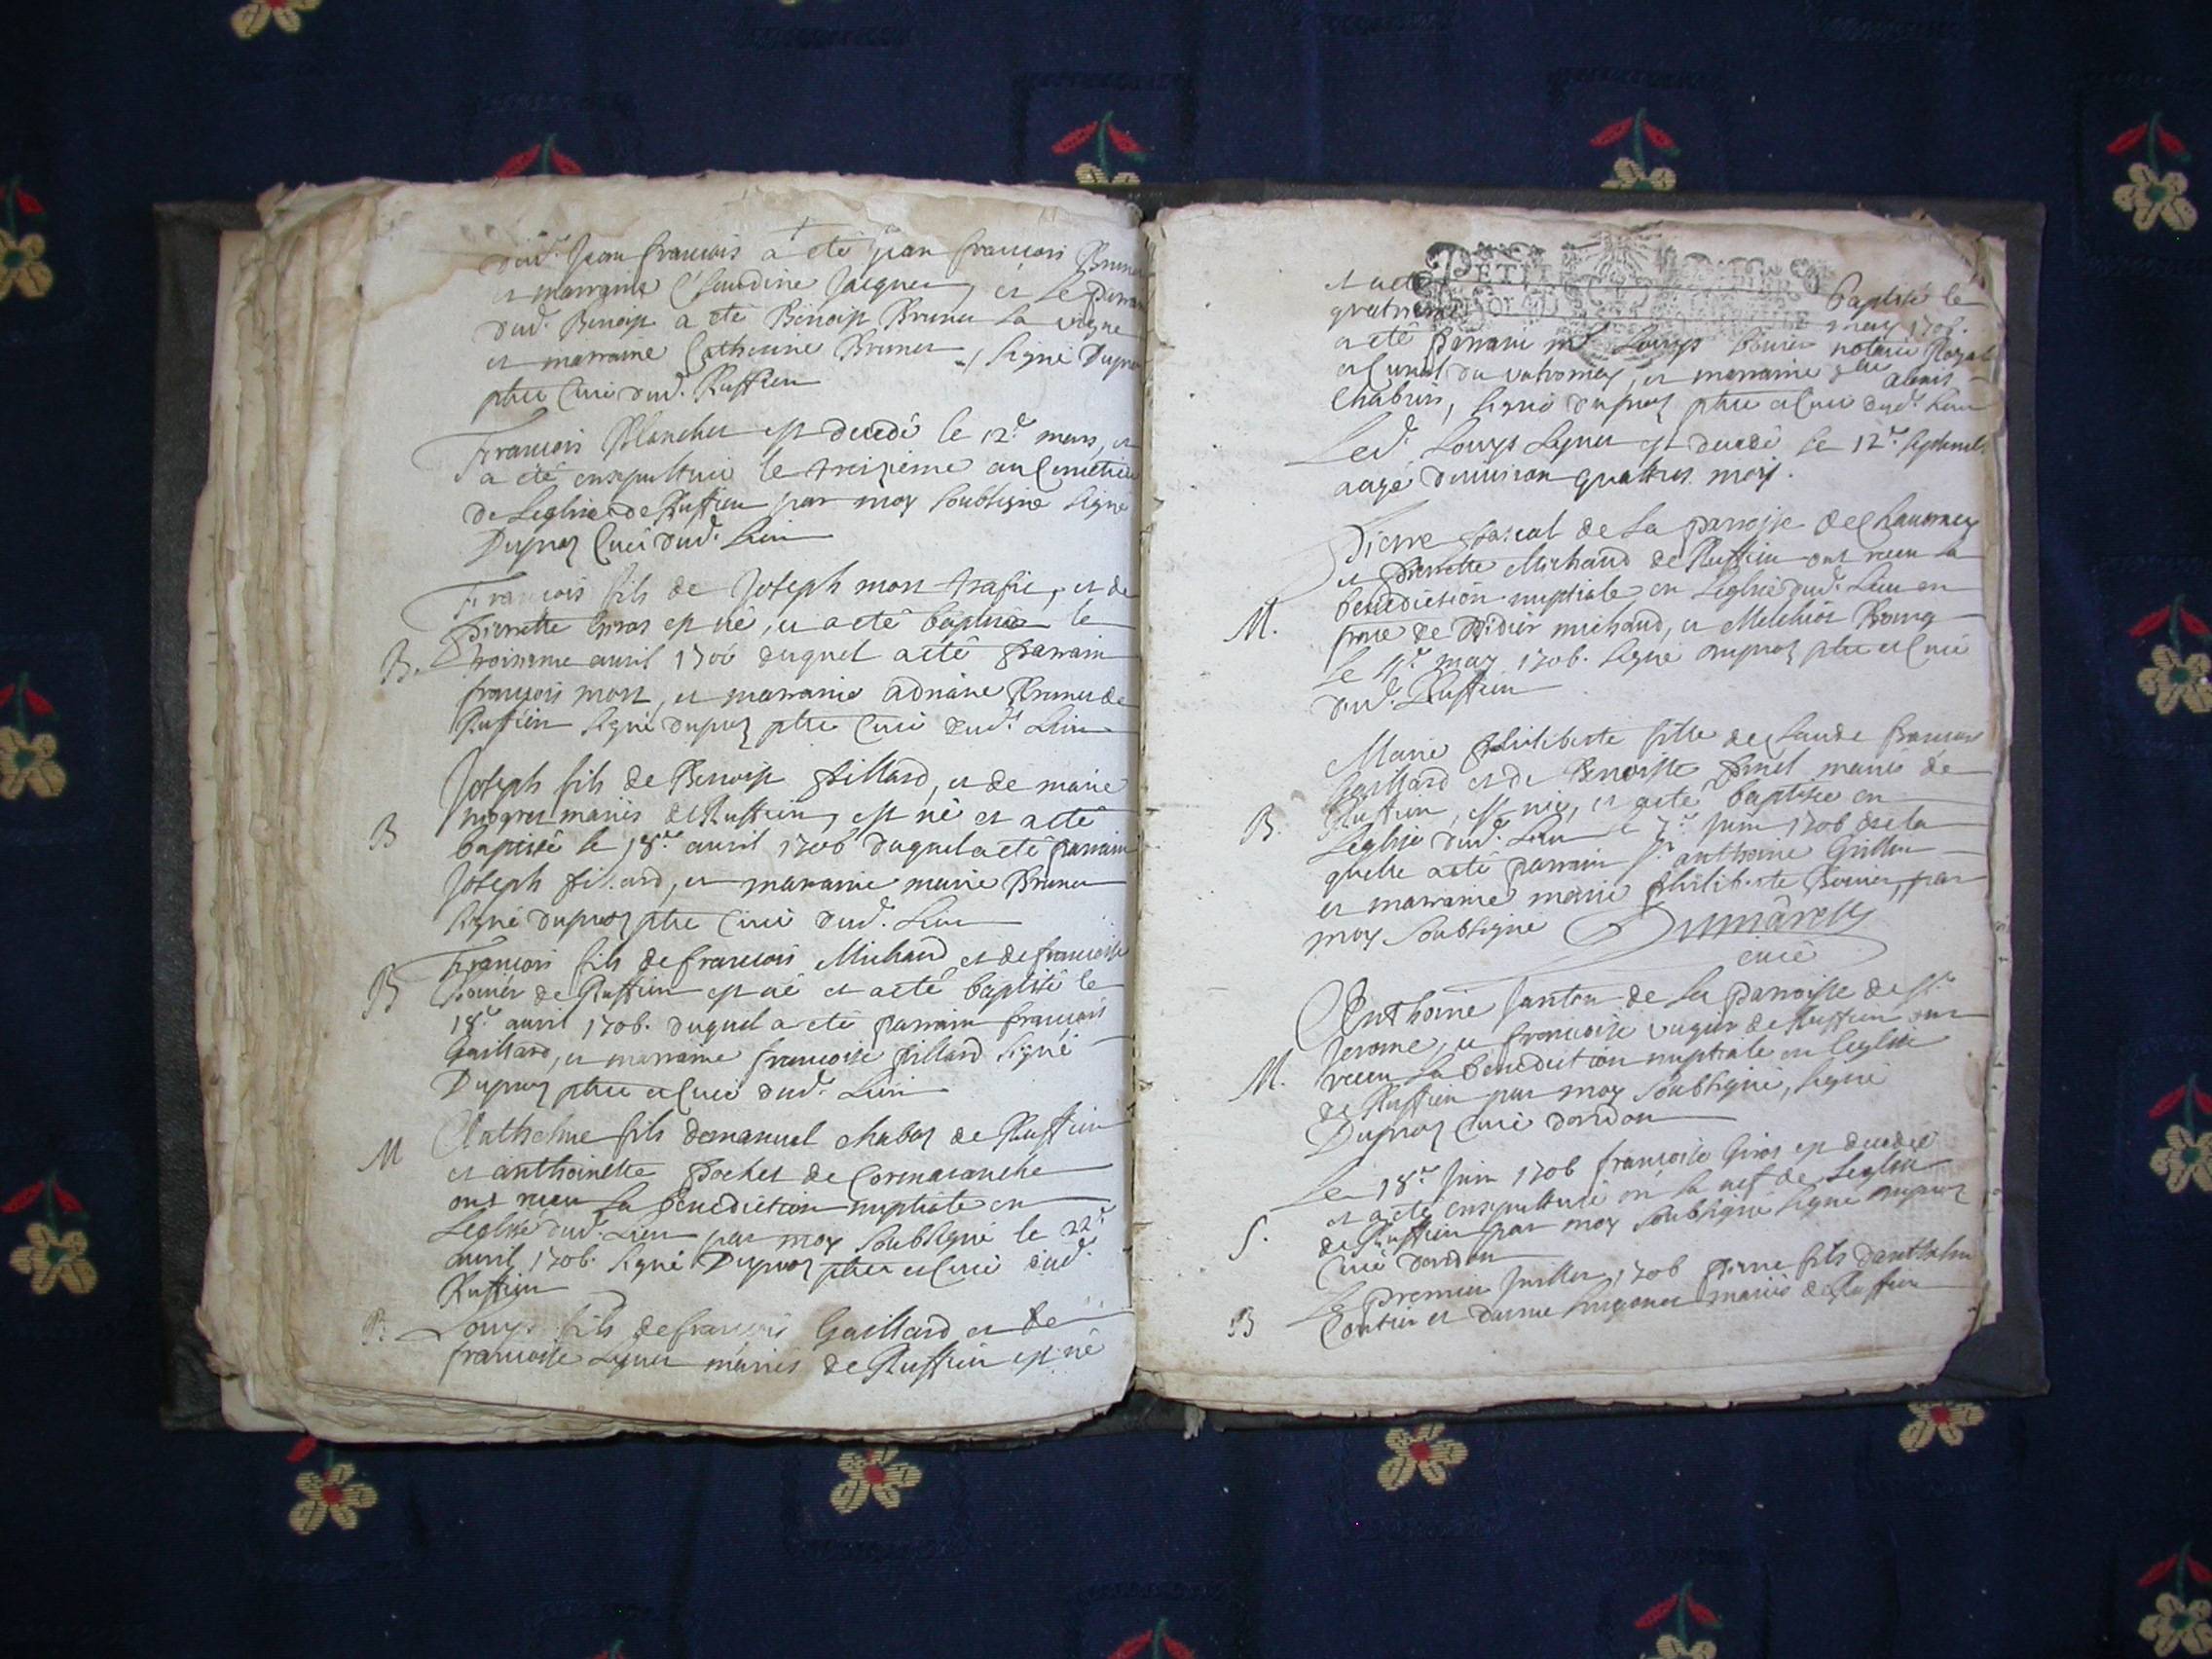 dud. Jean françois a eté jean françois Brunet
et marraine Claudine Jacquet, et le parrain
dud. Benoist a eté Benoist Brunet la vigne
et marraine Catherine Brunet signé Dupraz
ptre Curé dud. Ruffieu
François Blanchet est decedé le 12e mars, et
a été ensepulturé le treizieme au Cimetiere
de Leglise de Ruffieu par moy soubsigné signé
Dupraz Curé dud. Lieu
François fils de Joseph mort et de
B. Pierrette Giros est né, et a eté baptisé le
troisieme avril 1706 duquel a eté parrain
françois mort, et marraine adriane Brunet de
Ruffieu signé dupraz ptre Curé dud. Lieu
Joseph fils de Benoist Fillard, et de marie
B mariés de Ruffieu, est né et a eté
baptisé le 18e avril 1706 duquel a eté parrain
Joseph fillard, et marraine marie Brunet
signé dupraz ptre Curé dud. Lieu
François fils de francois Michaud et de francoise
B de Ruffieu est né et a eté baptisé le
18e avril 1706. duquel a eté parrain françois
Gaillard, et marraine francoise fillard signé
Dupraz ptre et Curé dud. Lieu
M Anthelme fils demanuel chabaz de Ruffieu
et anthoinette pochet de Cormaranche
ont receu la benediction nuptiale en
Leglise dud. Lieu par moy soubsigné le 22e
avril 1706. signé Dupraz ptre et Curé dud.
Ruffieu
B. Louys fils de francois Gaillard et de
francoise Lynet mariés de Ruffieu est né
PETIT
et a eté baptisé le
quatrieme may 1706.
a eté parrain mr Louys notaire Royal
et Curial du valromey, et marraine
signé dupraz ptre et Curé dud. Lieu
Led. Louys est decedé le 12e septembre
aagé denviron quattres mois.
Pierre pascal de la parroisse de
et pierrette Michaud de Ruffieu ont receu la
M. benediction nuptiale en Leglise dud. Lieu en
pnce de Didier michaud, et Melchior Bourg
le may 1706. signé dupraz ptre et Curé
dud. Ruffieu
Marie philiberte fille de Claude francois
Gaillard et de Benoiste mariés de
B. Ruffieu, est née, et a eté baptisée en
Leglise dud. Lieu le 7e juin 1706 de la
quelle a eté parrain sr. anthoine Grillon
et marraine marie philiberte par
moy soubsigné
curé
Anthoine Janton de la parroisse de st.
Jerome, et francoise de Ruffieu ont
M. receu la benediction nuptiale en leglise
de Ruffieu par moy soubsigné, signé
Dupraz Curé dordon
Le 18e Juin 1706 francoise Giros est decedée
et a eté ensepulturée en la nef de Leglise
S. de Ruffieu par moy soubsigné signé dupraz
Curé dordon
Le premier Juillet 1706 pierre fils danthelme
B mariés de Ruffieu